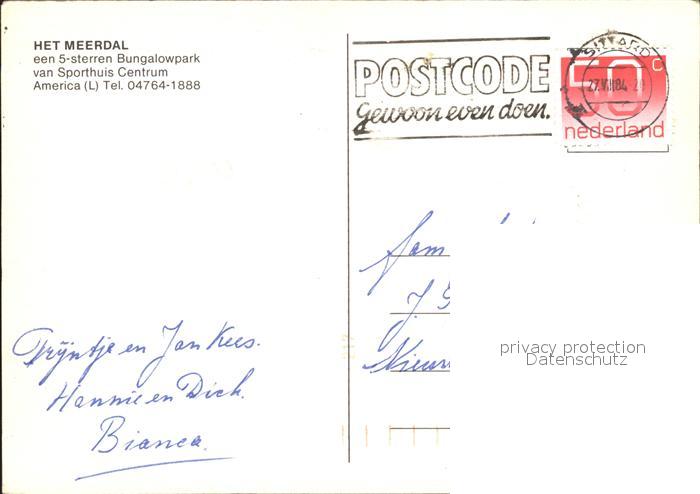 HET MEERDAL
een 5-sterren Bungalowpark
van Sporthuis Centrum
America (L) Tel. 04764-1888
POSTCODE
Gewoon even doen.
SITTARD
27.VII.84
50c
nederland
Fam
J.
Nieuw
privacy protection
Datenschutz
Trijntje en Jan Kees.
Hannie en Dick.
Bianca.